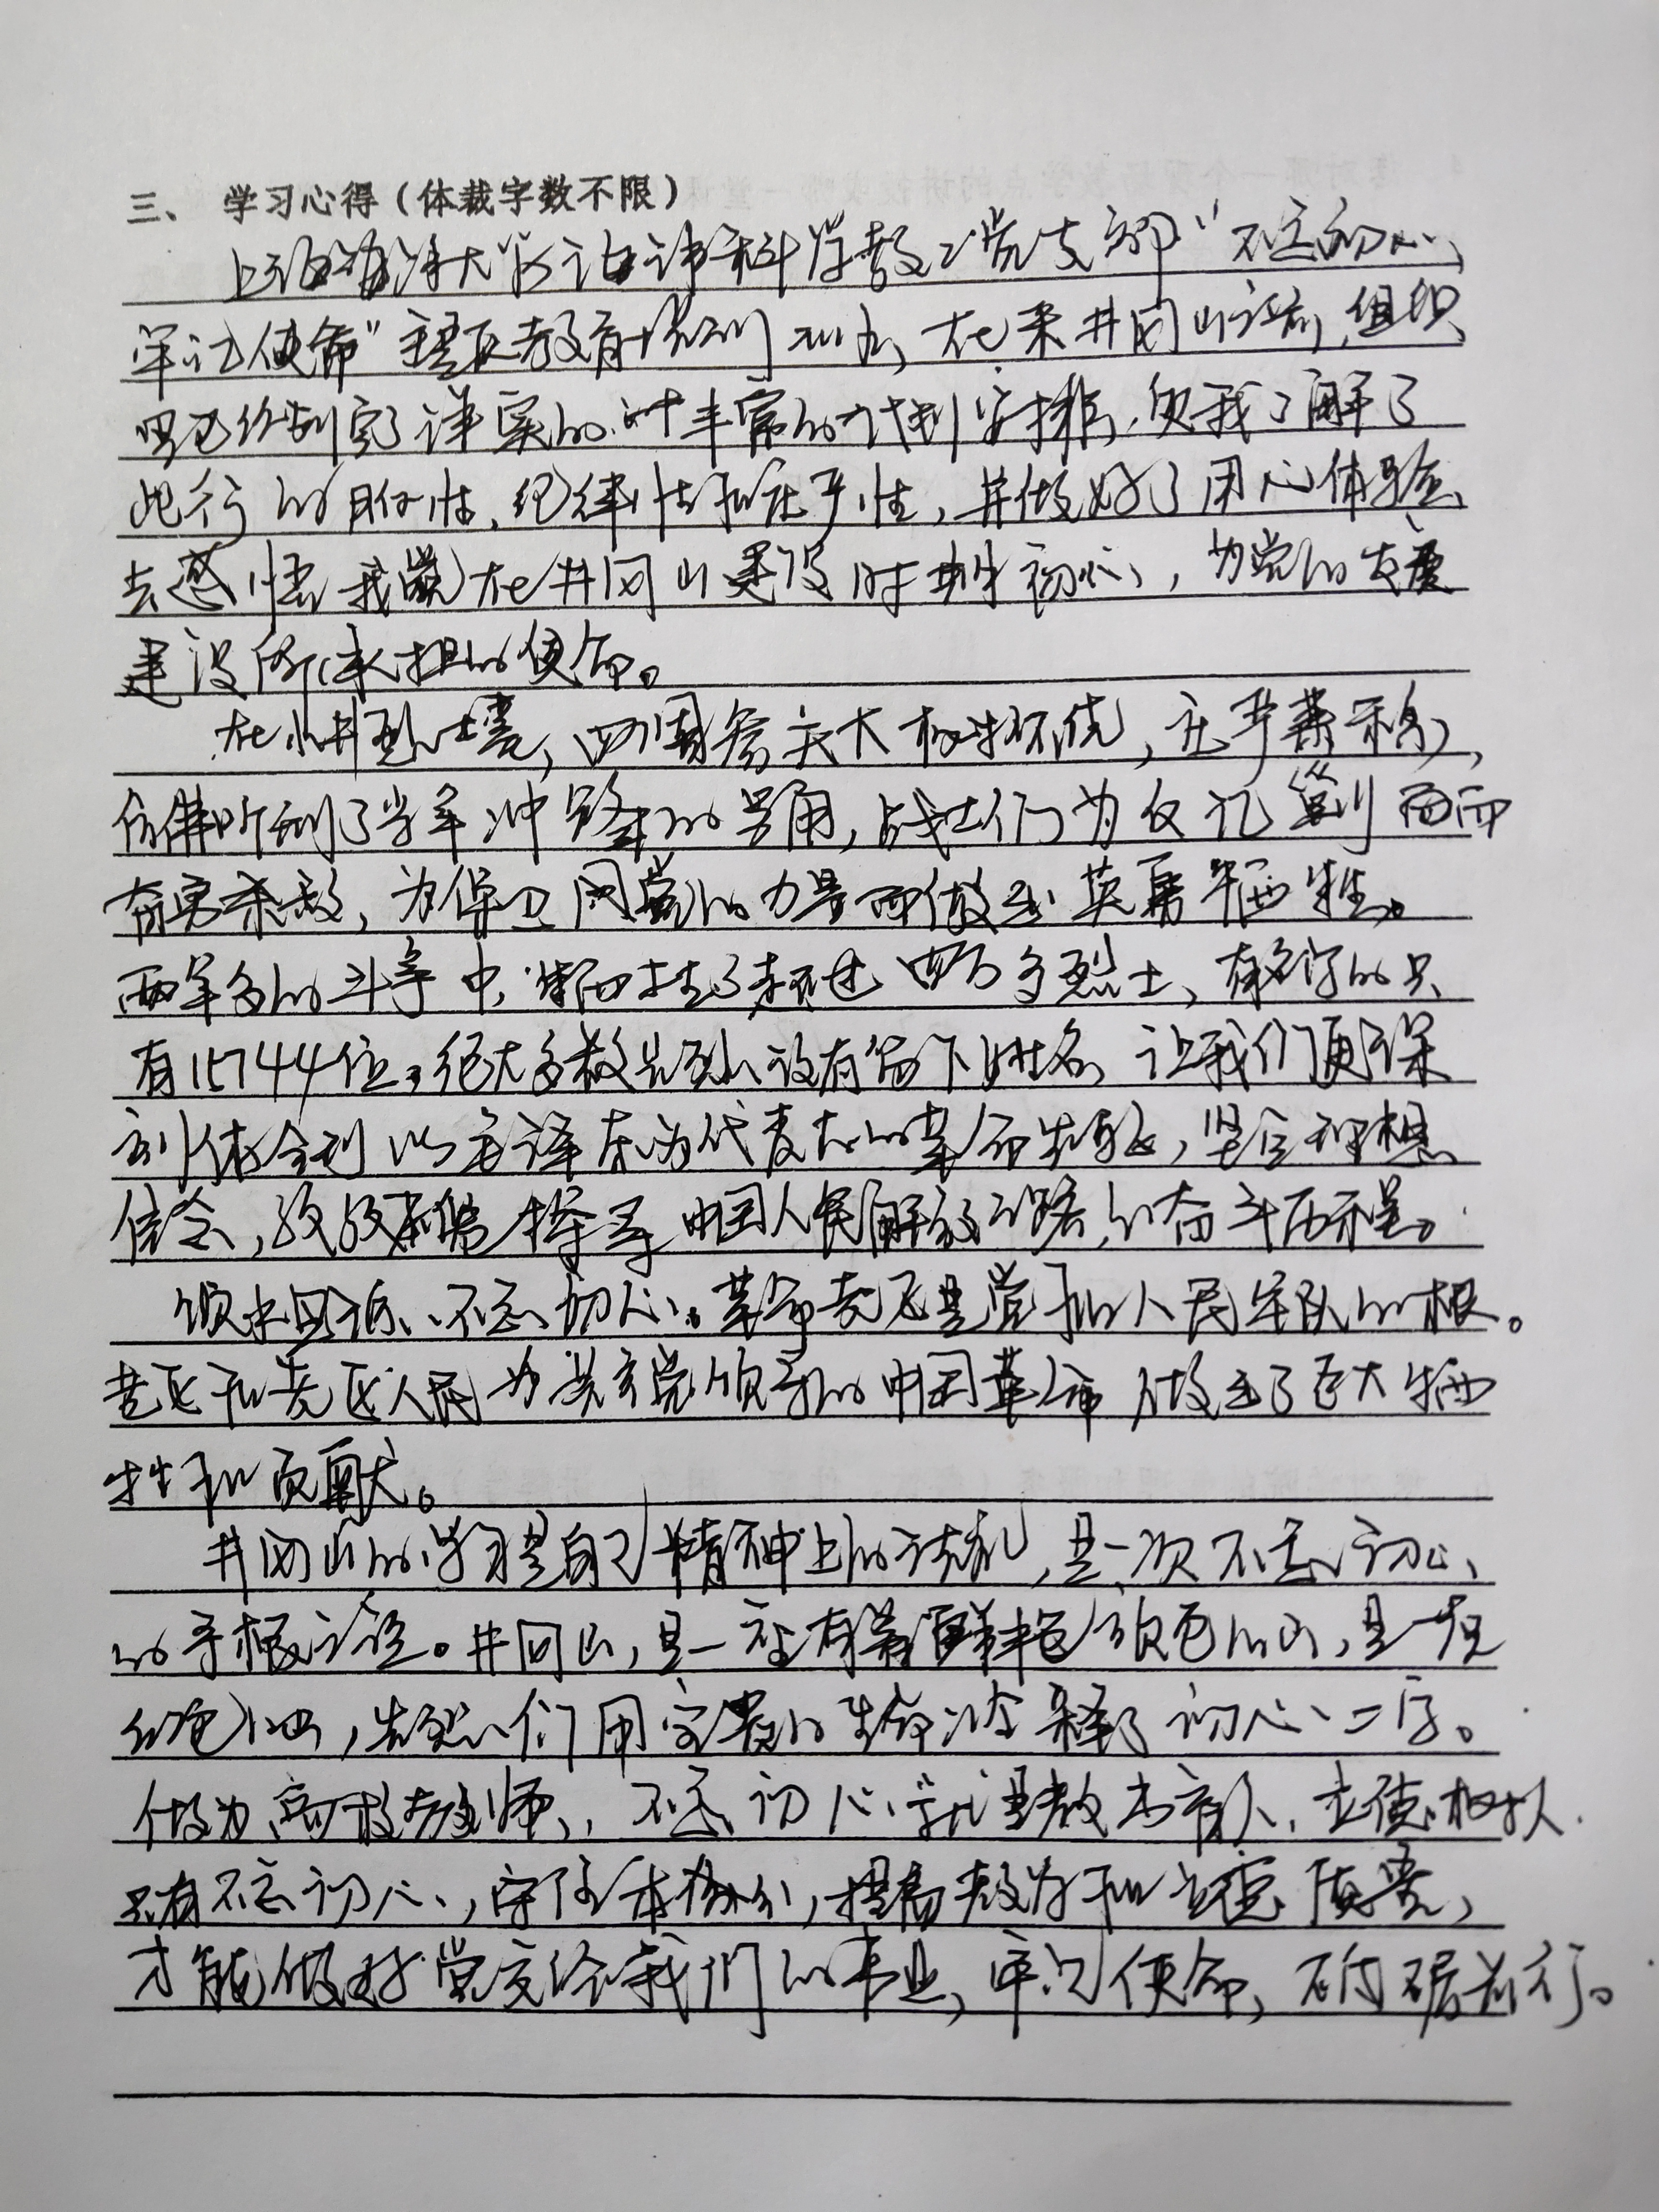 三、 学习心得（体裁字数不限）
上海海洋大学海洋科学教工党支部“不忘初心、
牢记使命”主题教育培训班，在来井冈山之前，组织
已经制定了详实的丰富的计划安排，使我了解了
此行的性，纪律性和庄严性，并做好了用心体验、
去感悟我党在井冈山建设时期初心，为党的发展
建设所承担的使命。
在小井烈士墓，四周参天大树环绕，庄严肃穆，
仿佛听到了当年冲锋的号角，战士们为反围剿而
奋勇杀敌，为保卫党的力量而做出英勇牺牲。
两年多的斗争中，牺牲了超过四万多烈士、有名字的只
有15744位，绝大多数先烈没有留下姓名，让我们更深
刻体会到以毛泽东为代表的革命先驱，坚定理想
信念，孜孜探寻中国人民解放道路的奋斗历程。
饮水思源、不忘初心。革命老区是党和人民军队的根。
老区和老区人民为共产党领导的中国革命做出了巨大牺
牲和贡献。
井冈山的学习是自己精神上的洗礼，是一次不忘初心、
的寻根之旅。井冈山，是一座有着鲜艳颜色的山，是一座
红色，先烈们用宝贵的生命诠释了初心二字。
做为高校教师，不忘初心就是教书育人，立德树人.
只有不忘初心，守住本份，提高教学和立德质量，
才能做好党交给我们的事业，牢记使命，砥砺前行。